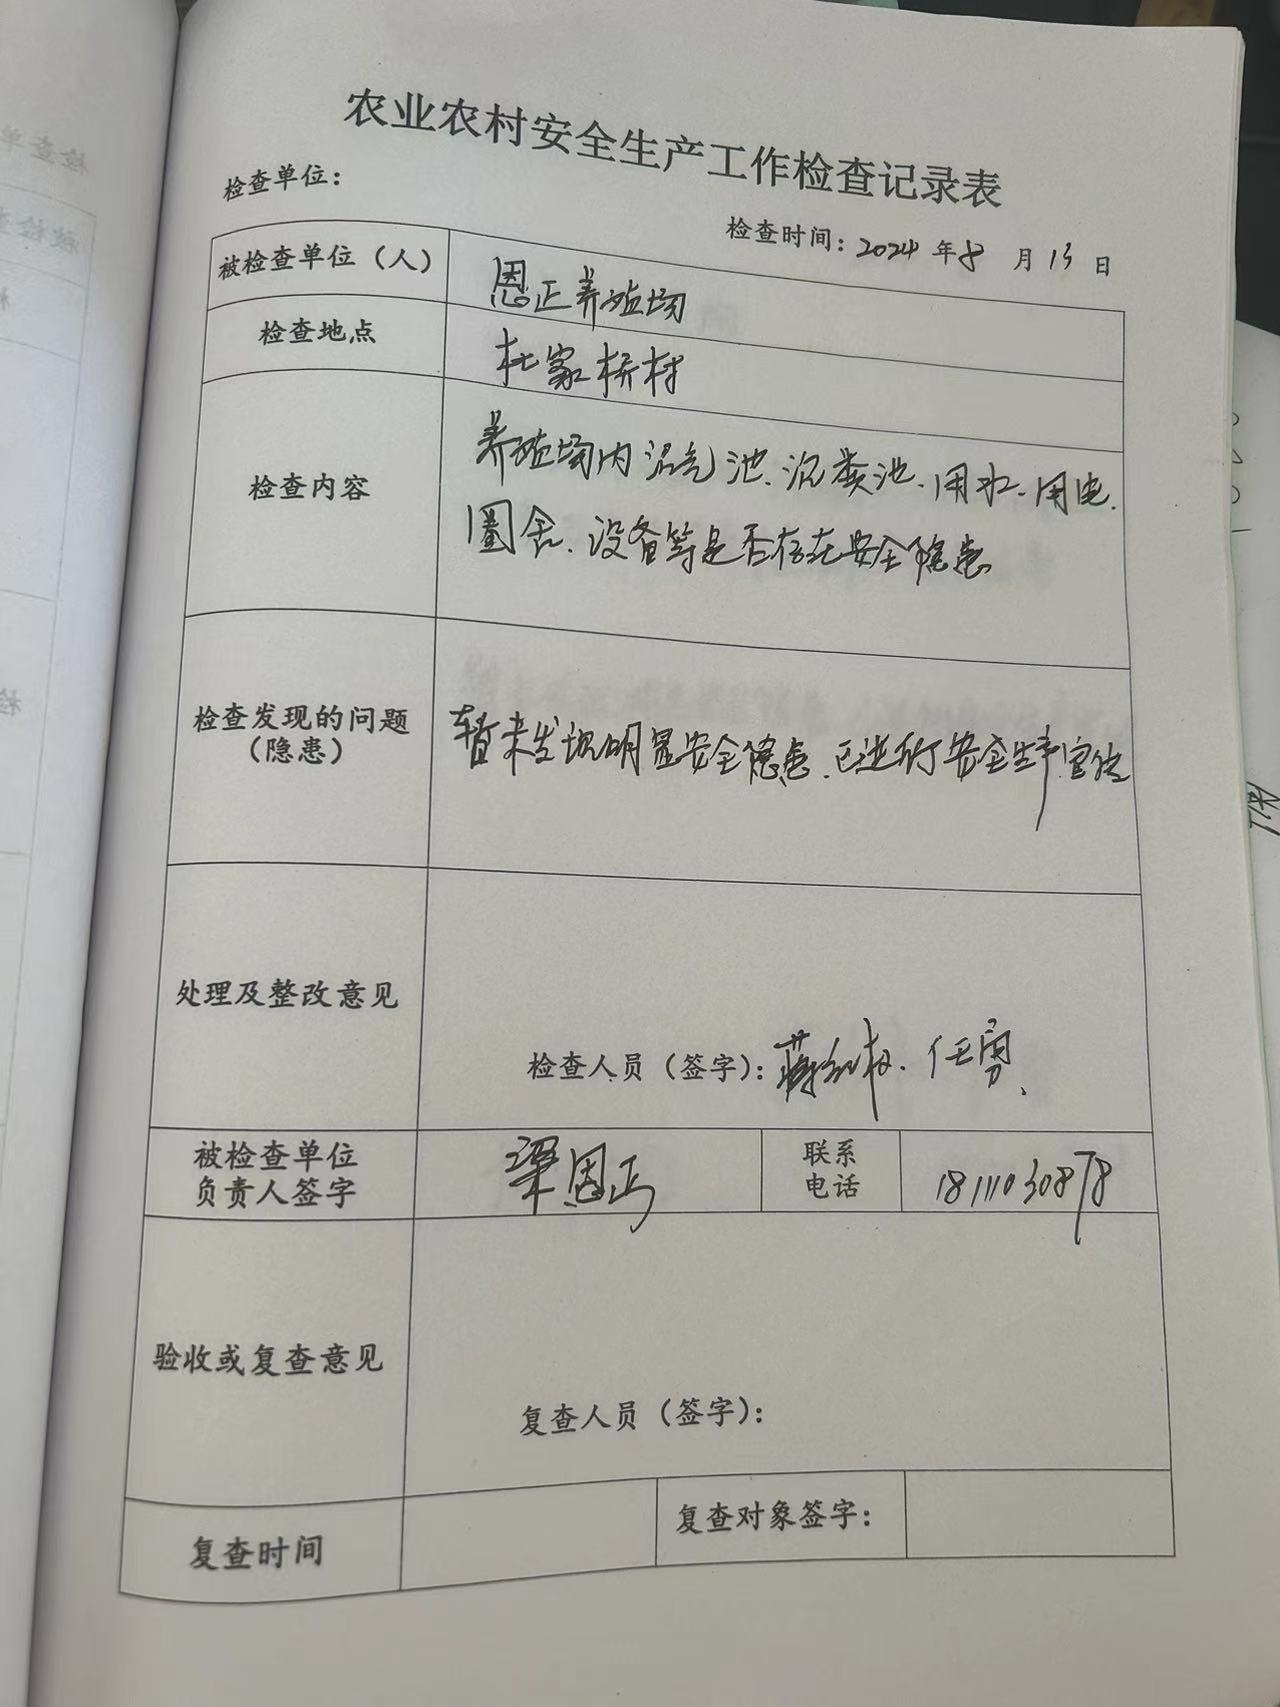 农业农村安全生产工作检查记录表
检查单位：
检查时间：2024年8月13日
被检查单位（人） 恩正养殖场
检查地点 杜家桥村
检查内容 养殖场内沼气池、沉粪池、用水、用电、
圈舍、设备等是否存在安全隐患
检查发现的问题
（隐患） 暂未发现明显安全隐患、已进行安全生产宣传
处理及整改意见
检查人员（签字）： 任勇
被检查单位
负责人签字 梁恩正
联系
电话 18111030878
验收或复查意见
复查人员（签字）：
复查时间 复查对象签字：